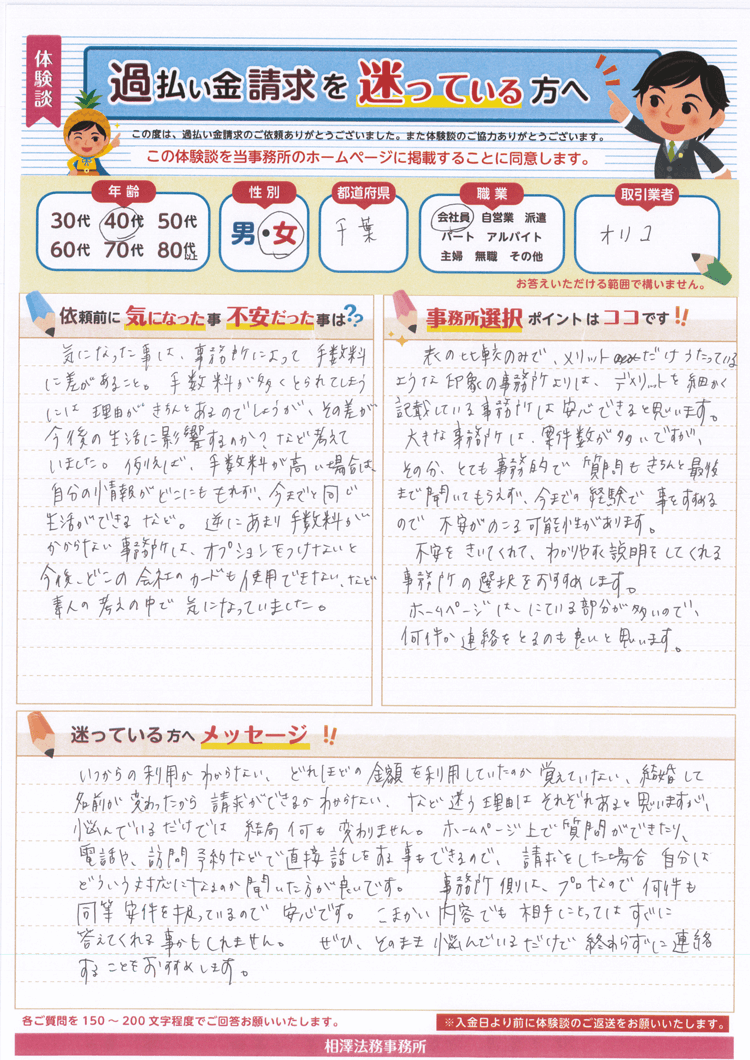 体験談
過払い金請求を迷っている方へ
この度は、過払い金請求のご依頼ありがとうございました。また体験談のご協力ありがとうございます。
この体験談を当事務所のホームページに掲載することに同意します。
年齢
30代 40代 50代
60代 70代 80代以上
性別
男・女
都道府県
千葉
職業
会社員 自営業 派遣
パート アルバイト
主婦 無職 その他
取引業者
オリコ
お答えいただける範囲で構いません。
依頼前に気になった事 不安だった事は??
気になった事は、事務所によって手数料
に差があること。手数料が多くとられてしまう
には理由がきちんとあるのでしょうが、その差が
今後の生活に影響するのか?など考えて
いました。例えば、手数料が高い場合は
自分の情報がどこにももれず、今までと同じ
生活ができるなど。逆にあまり手数料が
かからない事務所は、オプションをつけないと
今後、どこの会社のカードも使用できない、など
素人の考えの中で気になっていました。
事務所選択ポイントはココです!!
表の比較のみで、メリットだけうたっている
ような印象の事務所よりは、デメリットを細かく
記載している事務所は安心できると思います。
大きな事務所は、案件数が多いですが、
その分、とても事務的で質問もきちんと最後
まで聞いてもらえず、今までの経験で事をすすめる
ので不安がのこる可能性があります。
不安をきいてくれて、わかりやすく説明をしてくれる
事務所の選択をおすすめします。
ホームページは、にている部分が多いので、
何件か連絡をとるのも良いと思います。
迷っている方へメッセージ!!
いつからの利用かわからない、どれほどの金額を利用していたのか覚えていない、結婚して
名前が変わったから請求ができるかわからない、など迷う理由はそれぞれあると思いますが、
悩んでいるだけでは結局何も変わりません。ホームページ上で質問ができたり、
電話や、訪問予約などで直接話しをする事もできるので、請求をした場合自分は
どういう対応になるのか聞いた方が良いです。事務所側は、プロなので何件も
同等案件を扱っているので安心です。こまかい内容でも相手にとってはすぐに
答えてくれる事かもしれません。ぜひ、そのまま悩んでいるだけで終わらずに連絡
することをおすすめします。
各ご質問を150~200文字程度でご回答お願いいたします。
※入金日より前に体験談のご返送をお願いいたします。
相澤法務事務所